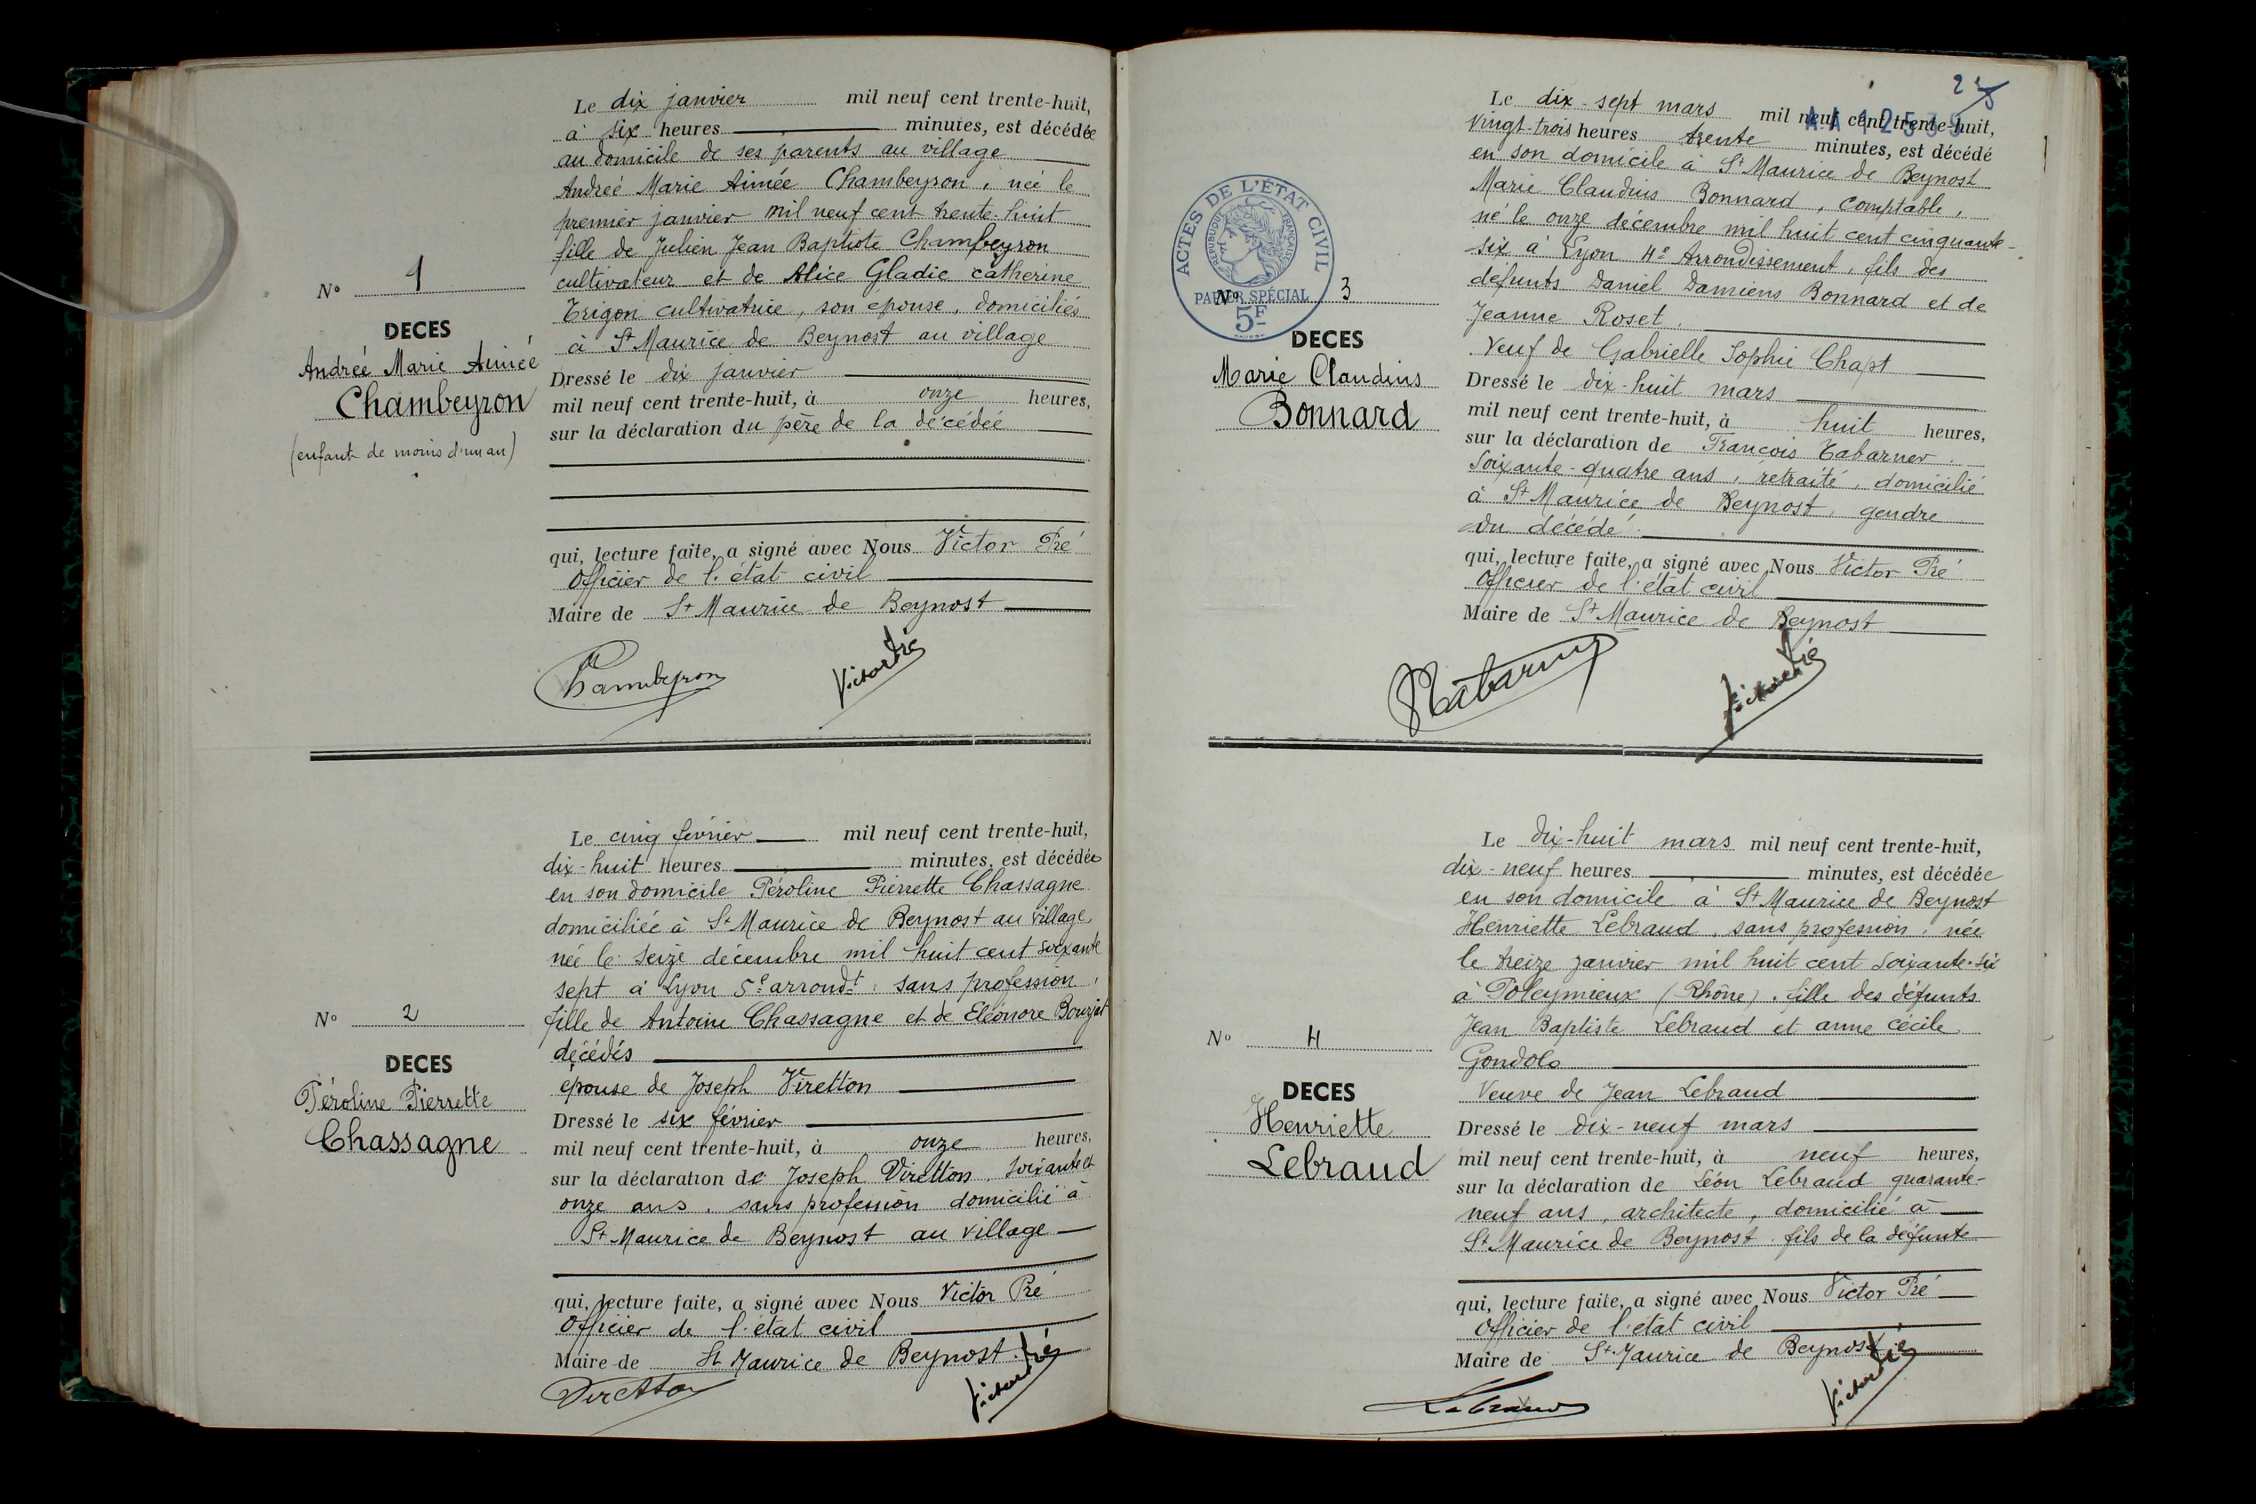 Le dix janvier mil neuf cent trente-huit,
à six heures minutes, est décédée
au domicile de ses parents au village
Andreé Marie Aimée Chambeyron, née le
premier janvier mil neuf cent trente-huit
fille de Julien Jean Baptiste Chambeyron
cultivateur et de Alice Gladie catherine
Trigon cultivatrice, son epouse, domiciliés
à St Maurice de Beynost au village
Dressé le dix janvier
mil neuf cent trente-huit, à onze heures,
sur la déclaration du père de la décédée
qui, lecture faite, a signé avec Nous Victor Pré
Officier de l'état civil
Maire de St Maurice de Beynost
Chambeyron Victor Pré
No 1
DECES
Andreé Marie Aimée
Chambeyron
(enfant de moins d'un an)
Le cinq février mil neuf cent trente-huit,
dix-huit heures minutes, est décédée
en son domicile Péroline Pierrette Chassagne
domiciliée à St Maurice de Beynost au village
née le seize décembre mil huit cent soixante
sept à Lyon 5e arrondt, sans profession,
fille de Antoine Chassagne et de Eléonore Bourjat
décédés
épouse de Joseph Viretton
Dressé le six février
mil neuf cent trente-huit, à onze heures,
sur la déclaration de Joseph Viretton, soixante et
onze ans, sans profession domicilié à
St Maurice de Beynost au village
qui, lecture faite, a signé avec Nous Victor Pré
Officier de l'état civil
Maire de St Maurice de Beynost
Viretton Victor Pré
No 2
DECES
Péroline Pierrette
Chassagne
Le dix-sept mars mil neuf cent trente-huit,
vingt-trois heures trente minutes, est décédé
en son domicile à St Maurice de Beynost
Marie Claudius Bonnard, comptable,
né le onze décembre mil huit cent cinquante-
six à Lyon 4e Arrondissement, fils des
défunts Daniel Damiens Bonnard et de
Jeanne Roset,
Veuf de Gabrielle Sophie Chapt
Dressé le dix-huit mars
mil neuf cent trente-huit, à huit heures,
sur la déclaration de François Tabarner
soixante-quatre ans, retraité, domicilié
à St Maurice de Beynost, gendre
du décédé
qui, lecture faite, a signé avec Nous Victor Pré
Officier de l'état civil
Maire de St Maurice de Beynost
Victor Pré
ACTES DE L'ÉTAT CIVIL
RÉPUBLIQUE FRANÇAISE
PAPIER SPÉCIAL
5F
No 3
DECES
Marie Claudius
Bonnard
Le dix-huit mars mil neuf cent trente-huit,
dix-neuf heures minutes, est décédée
en son domicile à St Maurice de Beynost
Henriette Lebraud, sans profession, née
le treize janvier mil huit cent soixante-six
à Poleymieux (Rhône), fille des défunts
Jean Baptiste Lebraud et anne cécile
Gondolo
Veuve de Jean Lebraud
Dressé le dix-neuf mars
mil neuf cent trente-huit, à neuf heures,
sur la déclaration de Léon Lebraud quarante-
neuf ans, architecte, domicilié à
St Maurice de Beynost fils de la défunte
qui, lecture faite, a signé avec Nous Victor Pré
Officier de l'état civil
Maire de St Maurice de Beynost
Lebraud Victor Pré
No 4
DECES
Henriette
Lebraud